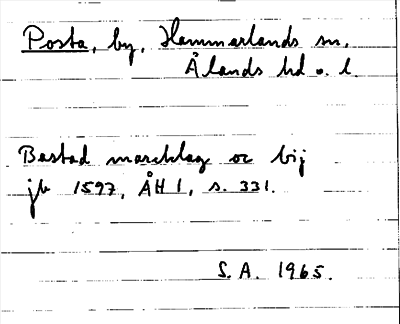 Posta, by, Hammarlands sn,
Ålands hd o. l.
Bastad marcklag oc bij
jb 1597, ÅH 1, s. 331.
S. A. 1965.